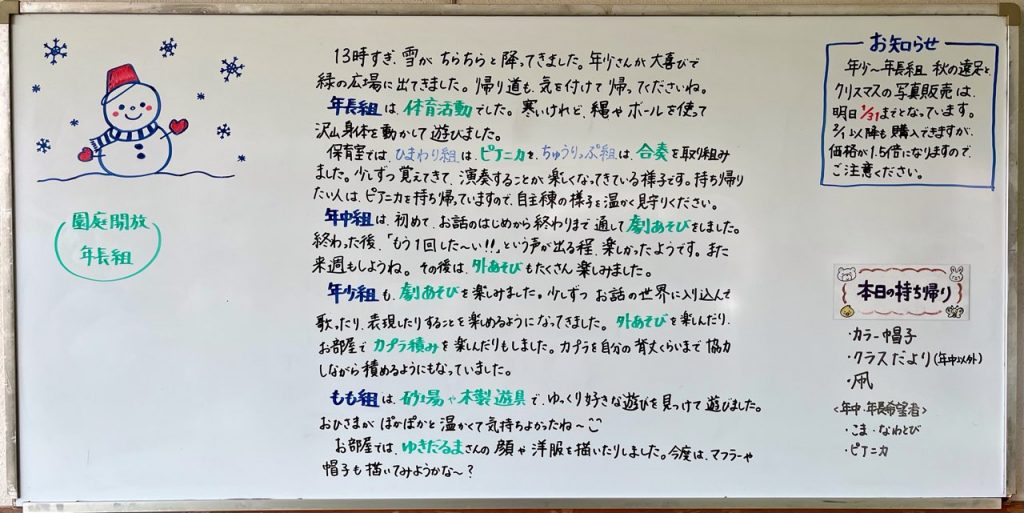 園庭開放
年長組
13時すぎ、雪が ちらちらと 降ってきました。年少さんが 大喜びで
緑の広場に出てきました。帰り道も、気を付けて 帰ってくださいね。
年長組は、体育活動でした。寒いけれど、縄や ボールを使って
沢山身体を動かして 遊びました。
保育室では、ひまわり組は、ピアニカを、ちゅうりっぷ組は、合奏を取り組み
ました。少しずつ 覚えてきて、演奏することが 楽しくなってきている様子です。持ち帰り
たい人は、ピアニカを持ち帰っていますので、自主練の様子を温かく見守りください。
年中組は、初めて、お話のはじめから終わりまで 通して劇あそびをしました。
終わった後、「もう1回した〜い!!」という声が出る程、楽しかったようです。また
来週もしようね。その後は、外あそびもたくさん 楽しみました。
年少組も、劇あそびを楽しみました。少しずつ お話の世界に入り込んで
歌ったり、表現したりすることを 楽しめるようになってきました。外あそびを楽しんだり、
お部屋で カプラ積みを 楽しんだりもしました。カプラを自分の背丈くらいまで 協力
しながら 積めるようにもなっていました。
もも組は、砂場や木製遊具で、ゆっくり好きな遊びを見つけて 遊びました。
おひさまが ぽかぽかと 温かくて 気持ちよかったね〜
お部屋では、ゆきだるまさんの 顔や 洋服を描いたりしました。今度は、マフラーや
帽子も 描いてみようかな〜?
お知らせ
年少〜年長組 秋の遠足と、
クリスマスの写真販売は、
明日1/31までとなっています。
2/1以降も購入できますが、
価格が1.5倍になりますので、
ご注意ください。
本日の持ち帰り
・カラー帽子
・クラスだより(年中以外)
・凧
<年中・年長希望者>
・こま・なわとび
・ピアニカ